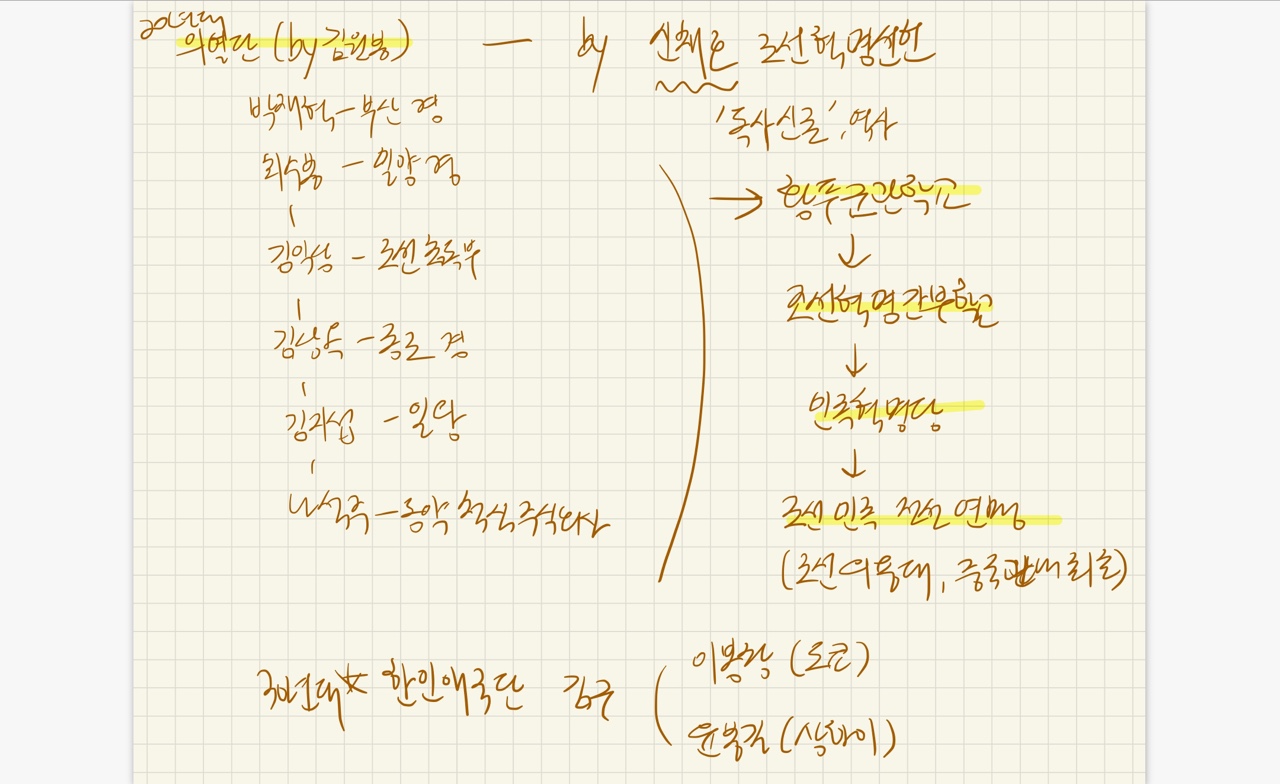 20년대
의열단 (by 김원봉) — by 신채호 조선혁명선언
'독사신론', 역사
박재혁 - 부산 경
최수봉 - 밀양 경
김익상 - 조선총독부
김상옥 - 종로 경
김지섭 - 일왕
나석주 - 동양척식주식회사
→ 황푸군관학교
↓
조선혁명간부학교
↓
민족혁명당
↓
조선 민족 전선 연맹
(조선의용대, 중국관내 최초)
30년대 ☆ 한인애국단 김구
이봉창 (도쿄)
윤봉길 (상하이)